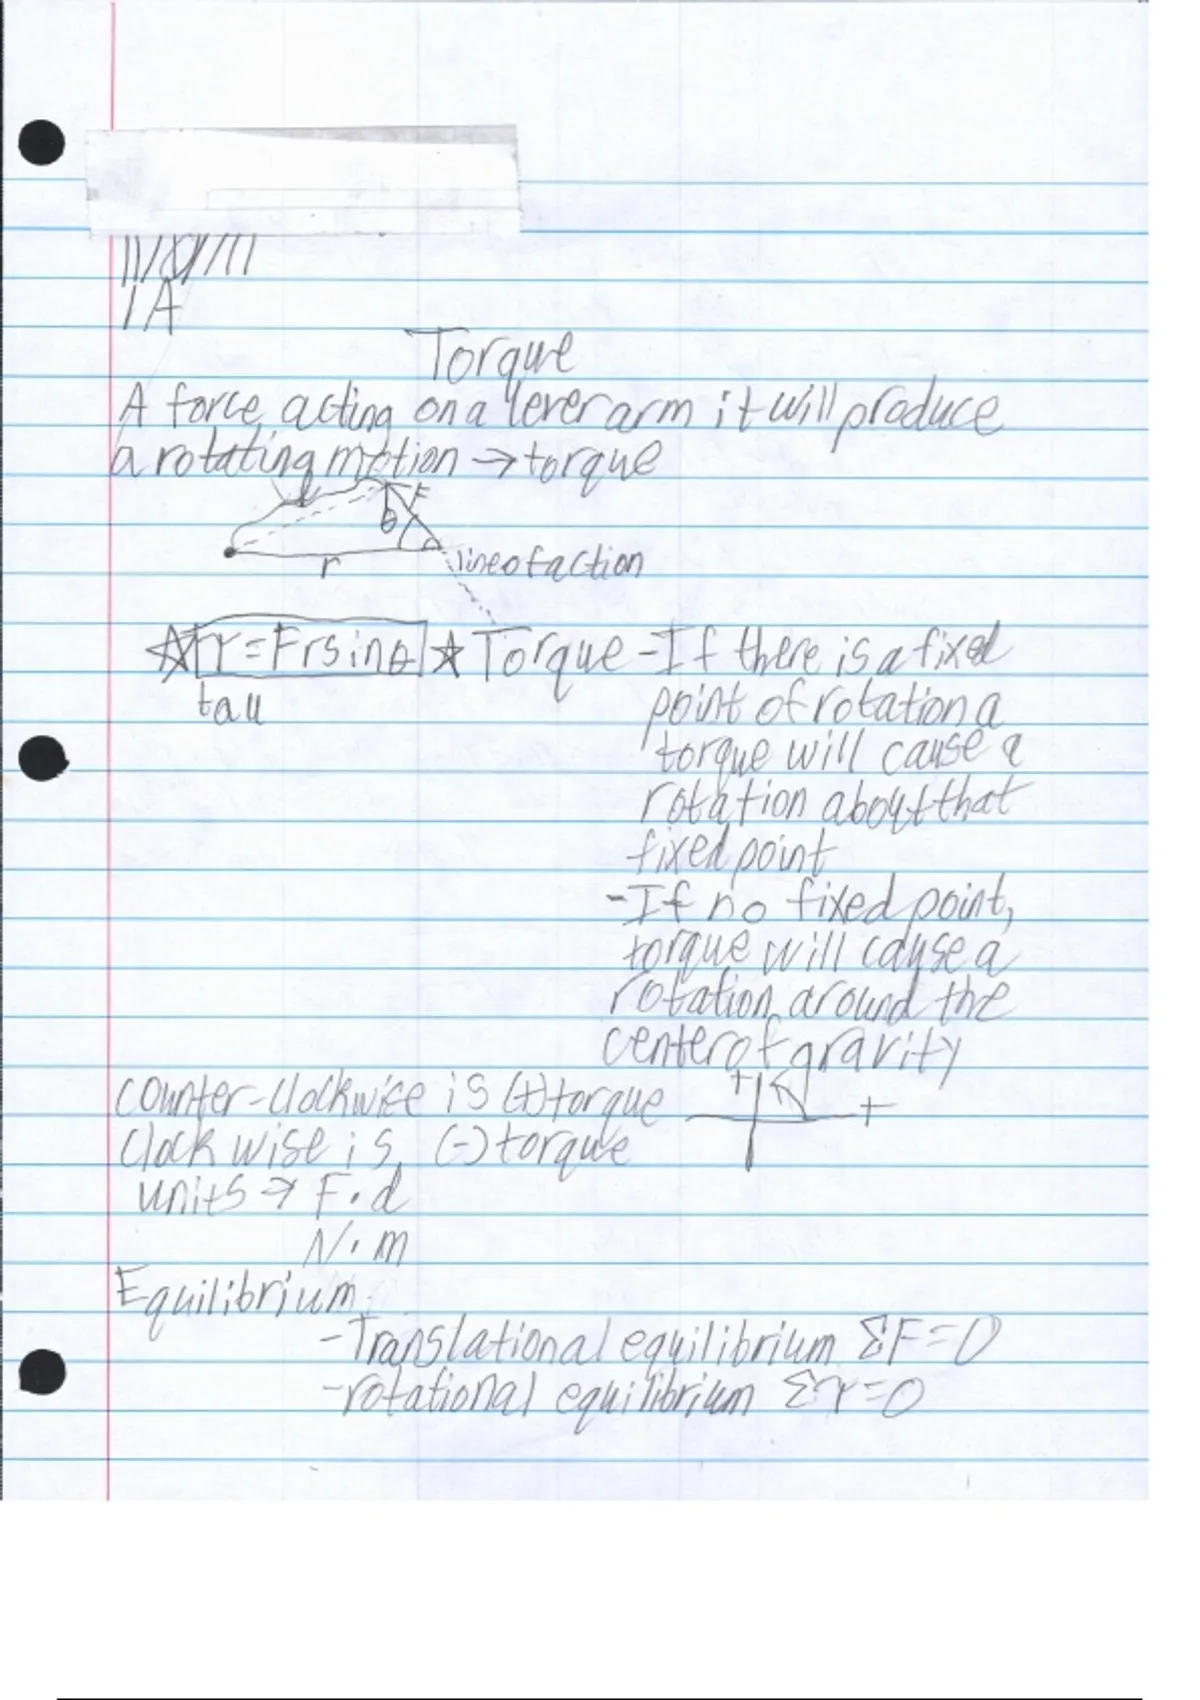 1A
Torque
A force acting on a lever arm it will produce
a rotating motion → torque
d F
θ
r line of action
☆ τ = Frsinθ ☆ Torque - If there is a fixed
tau point of rotation a
torque will cause a
rotation about that
fixed point
- If no fixed point,
torque will cause a
rotation around the
center of gravity
counter-clockwise is (+) torque + +
clockwise is (-) torque
units → F·d
N·m
Equilibrium
- Translational equilibrium ΣF = 0
- rotational equilibrium Στ = 0